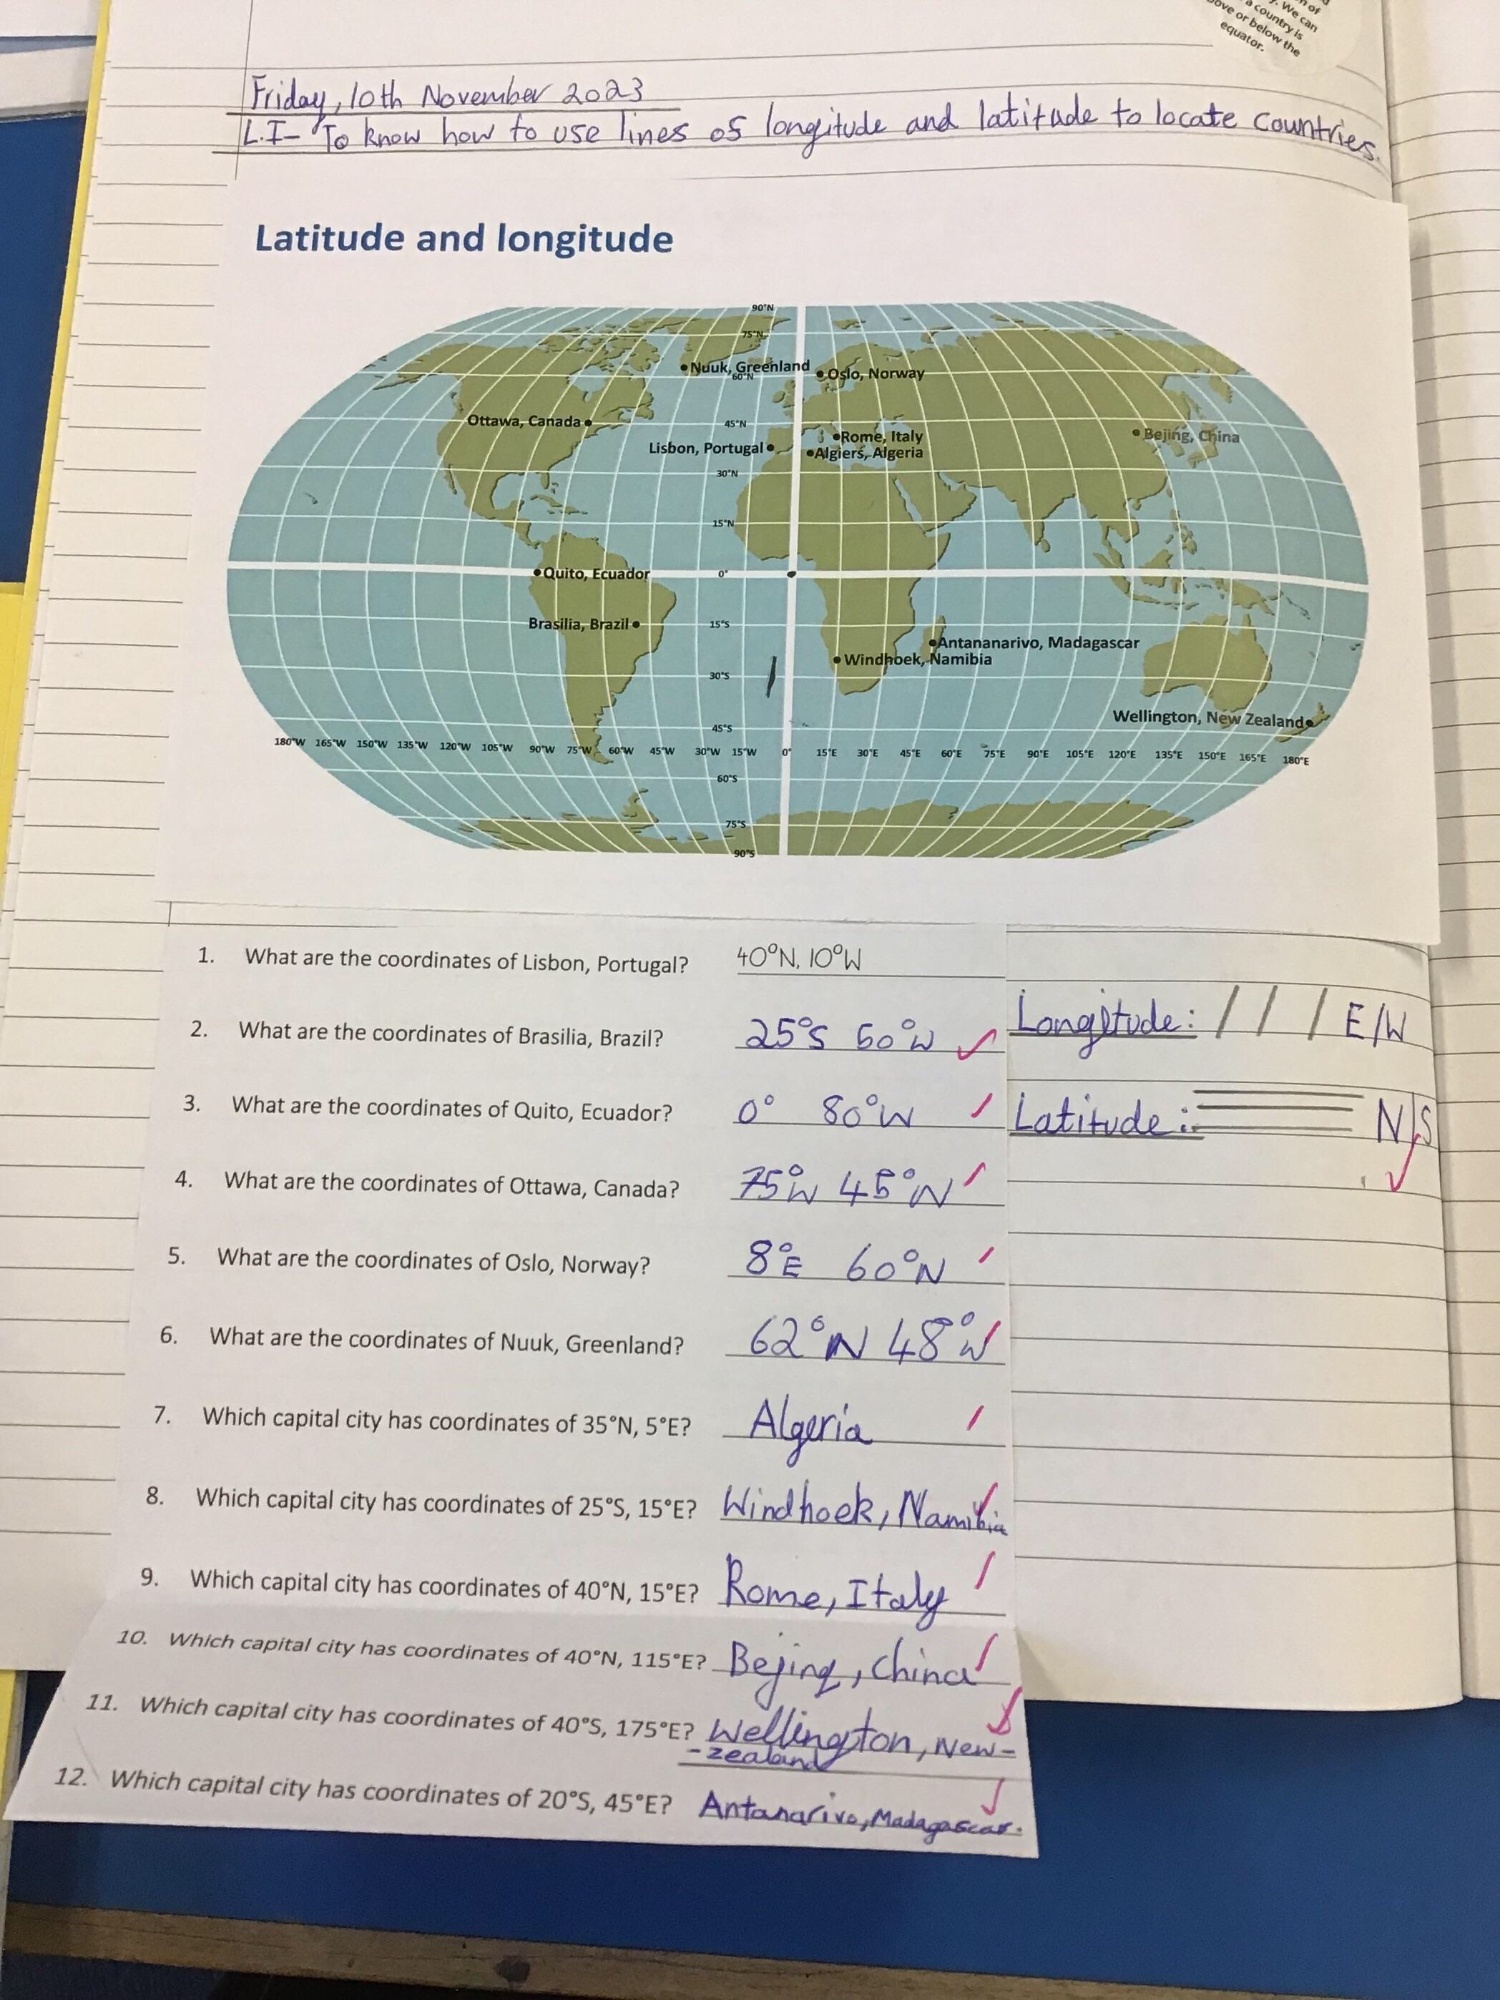 n of
y. We can
a country is
ove or below the
equator.
Friday, 10th November 2023
L.I- To know how to use lines of longitude and latitude to locate countries.
Latitude and longitude
90°N
75°N
Nuuk, Greenland
Oslo, Norway
60°N
Ottawa, Canada
45°N
Lisbon, Portugal
Rome, Italy
Bejing, China
Algiers, Algeria
30°N
15°N
Quito, Ecuador
0°
Brasilia, Brazil
15°S
Antananarivo, Madagascar
Windhoek, Namibia
30°S
Wellington, New Zealand
45°S
180°W 165°W 150°W 135°W 120°W 105°W 90°W 75°W 60°W 45°W 30°W 15°W 0° 15°E 30°E 45°E 60°E 75°E 90°E 105°E 120°E 135°E 150°E 165°E 180°E
60°S
75°S
90°S
1. What are the coordinates of Lisbon, Portugal? 40°N, 10°W
2. What are the coordinates of Brasilia, Brazil? 25°S 50°W
3. What are the coordinates of Quito, Ecuador? 0° 80°W
4. What are the coordinates of Ottawa, Canada? 75°W 45°N
5. What are the coordinates of Oslo, Norway? 8°E 60°N
6. What are the coordinates of Nuuk, Greenland? 62°N 48°W
7. Which capital city has coordinates of 35°N, 5°E? Algeria
8. Which capital city has coordinates of 25°S, 15°E? Windhoek, Namibia
9. Which capital city has coordinates of 40°N, 15°E? Rome, Italy
10. Which capital city has coordinates of 40°N, 115°E? Bejing, China
11. Which capital city has coordinates of 40°S, 175°E? Wellington, New-
-zealand
12. Which capital city has coordinates of 20°S, 45°E? Antanarivo, Madagascar.
Longitude: / / / E/W
Latitude: N/S